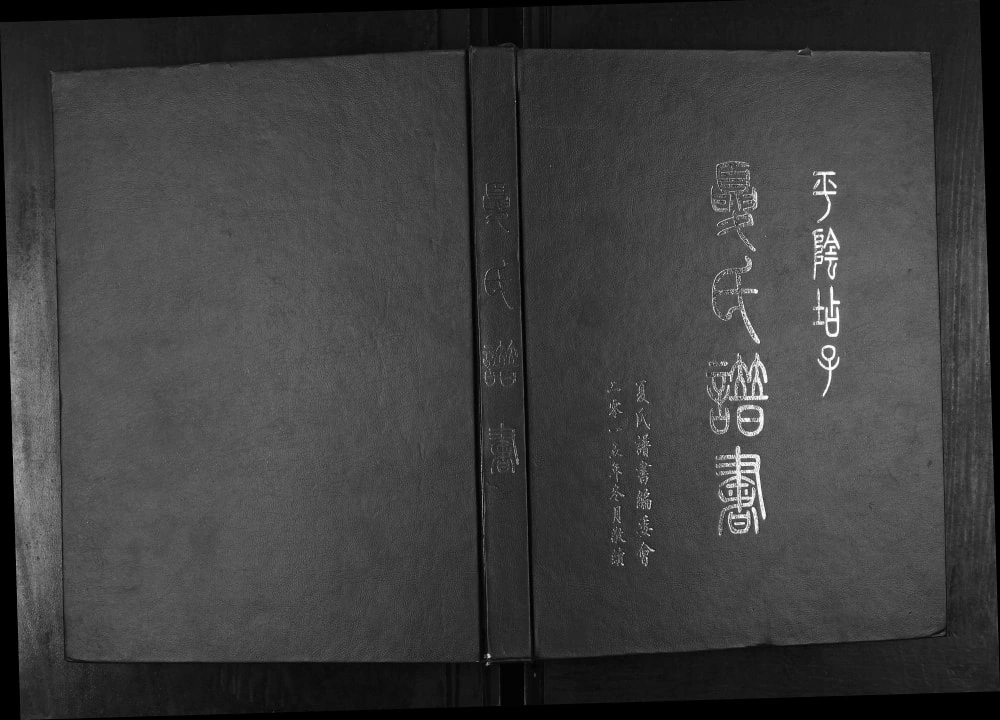 平陰坫子
夏氏譜書
夏氏譜書編委會
二零一五年冬月敬續
夏氏譜書